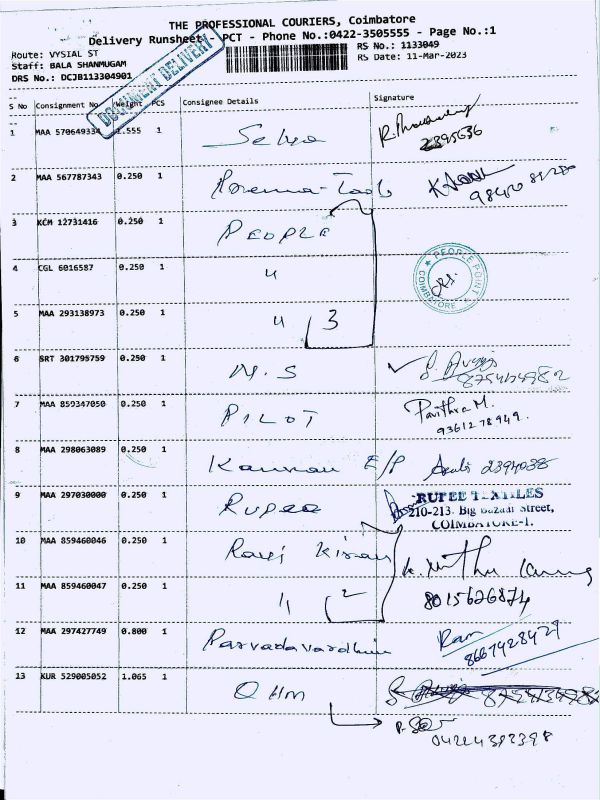 THE PROFESSIONAL COURIERS, Coimbatore
Delivery Runsheet - PCT - Phone No.:0422-3505555 - Page No.:1
Route: VYSIAL ST
RS No.: 1133049
Staff: BALA SHANMUGAM
RS Date: 11-Mar-2023
DRS No.: DCJB113304901
DOCUMENT DELIVERY
S No Consignment No Weight PCS Consignee Details Signature
1 MAA 570649334 1.555 1 Selva
2395636
2 MAA 567787343 0.250 1
3 KCM 12731416 0.250 1 PEOPLE
4 CGL 6016587 0.250 1 "
PEOPLE POINT COIMBATORE
5 MAA 293138973 0.250 1 " 3
6 SRT 301795759 0.250 1 M.S
7 MAA 859347050 0.250 1 PILOT Pavithra M.
9361278949.
8 MAA 298063089 0.250 1 Kannan E/P 2394038
9 MAA 297030000 0.250 1 Rupee RUPEE TEXTILES
210-213, Big Bazaar Street,
COIMBATORE-1.
10 MAA 859460046 0.250 1 Ravi Kiran
11 MAA 859460047 0.250 1 " 2 8015626874
12 MAA 297427749 0.800 1 Ram
8667428427
13 KUR 529005052 1.065 1 OHM
04224392398